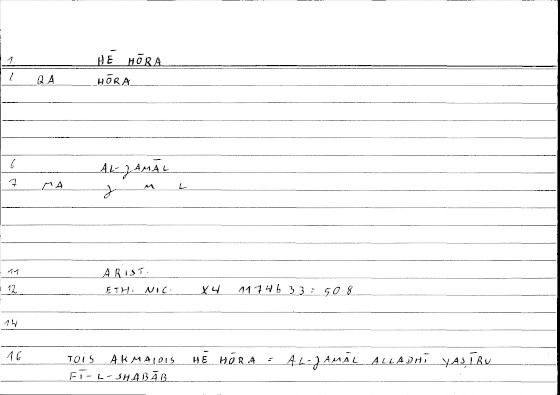 1 HĒ HŌRA
2 QA HŌRA
6 AL-ǦAMĀL
7 MA ǧ M L
11 ARIST.
12 ETH. NIC. X4 1174b33 = 50.8
14
16 TOIS AKMAIOIS HĒ HŌRA = AL-ǦAMĀL ALLADHĪ YAṢĪRU
FĪ-L-SHABĀB